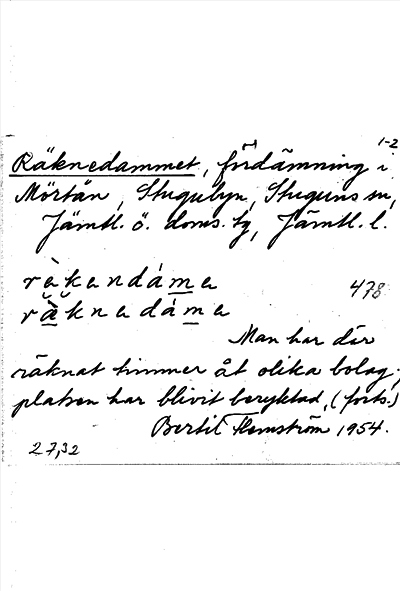 1-2
Räknedammet, fördämning i
Mörtån, Stugubyn, Stuguns sn,
Jämtl. ö. doms. tg, Jämtl. l.
rä̀kendáma
rä̀knedáma
478
Man har där
räknat timmer åt olika bolag;
platsen har blivit beryktad. (forts.)
Bertil Flemström 1954.
27,32